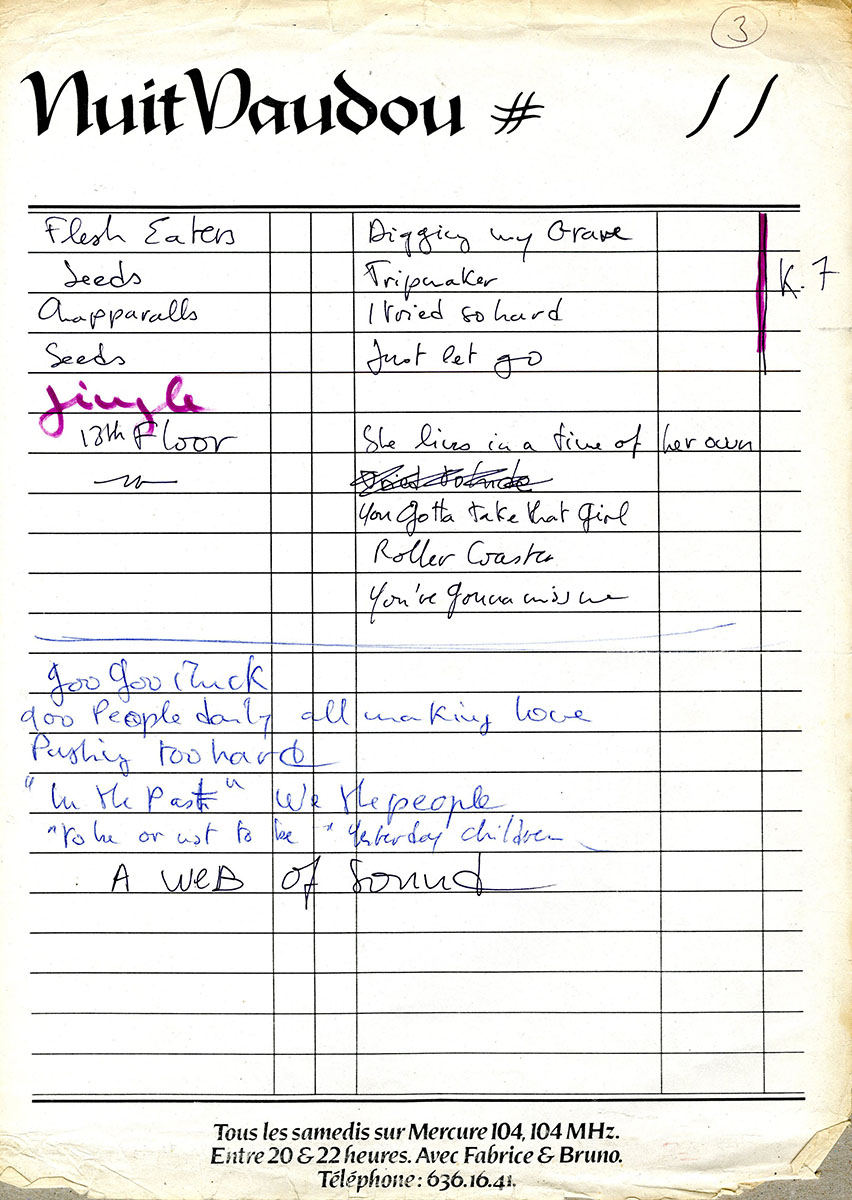 3
Nuit Vaudou # 11
Flesh Eaters Digging my Grave
Seeds Tripmaker K.7
Chapparalls I tried so hard
Seeds Just let go
Jingle
13th Floor She lives in a time of her own
Tried to hide
You Gotta take that girl
Roller Coaster
You're Gonna miss me
goo goo muck
900 People daily all making love
Pushing too hard
"In the Past" We the people
"to be or not to be" Yesterday children
A WEB OF Sound
Tous les samedis sur Mercure 104, 104 MHz.
Entre 20 & 22 heures. Avec Fabrice & Bruno.
Téléphone : 636.16.41.